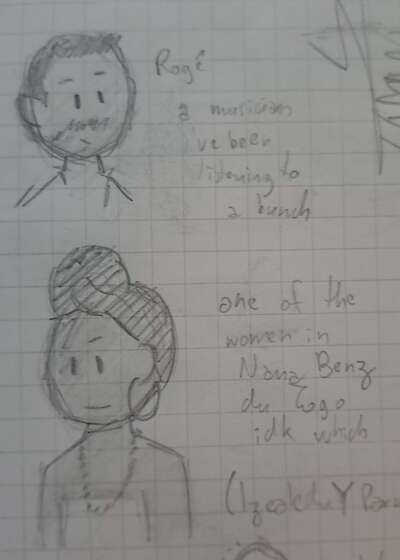 Rogê
a musician
I've been
listening to
a bunch
one of the
women in
Nana Benz
du Togo
idk which